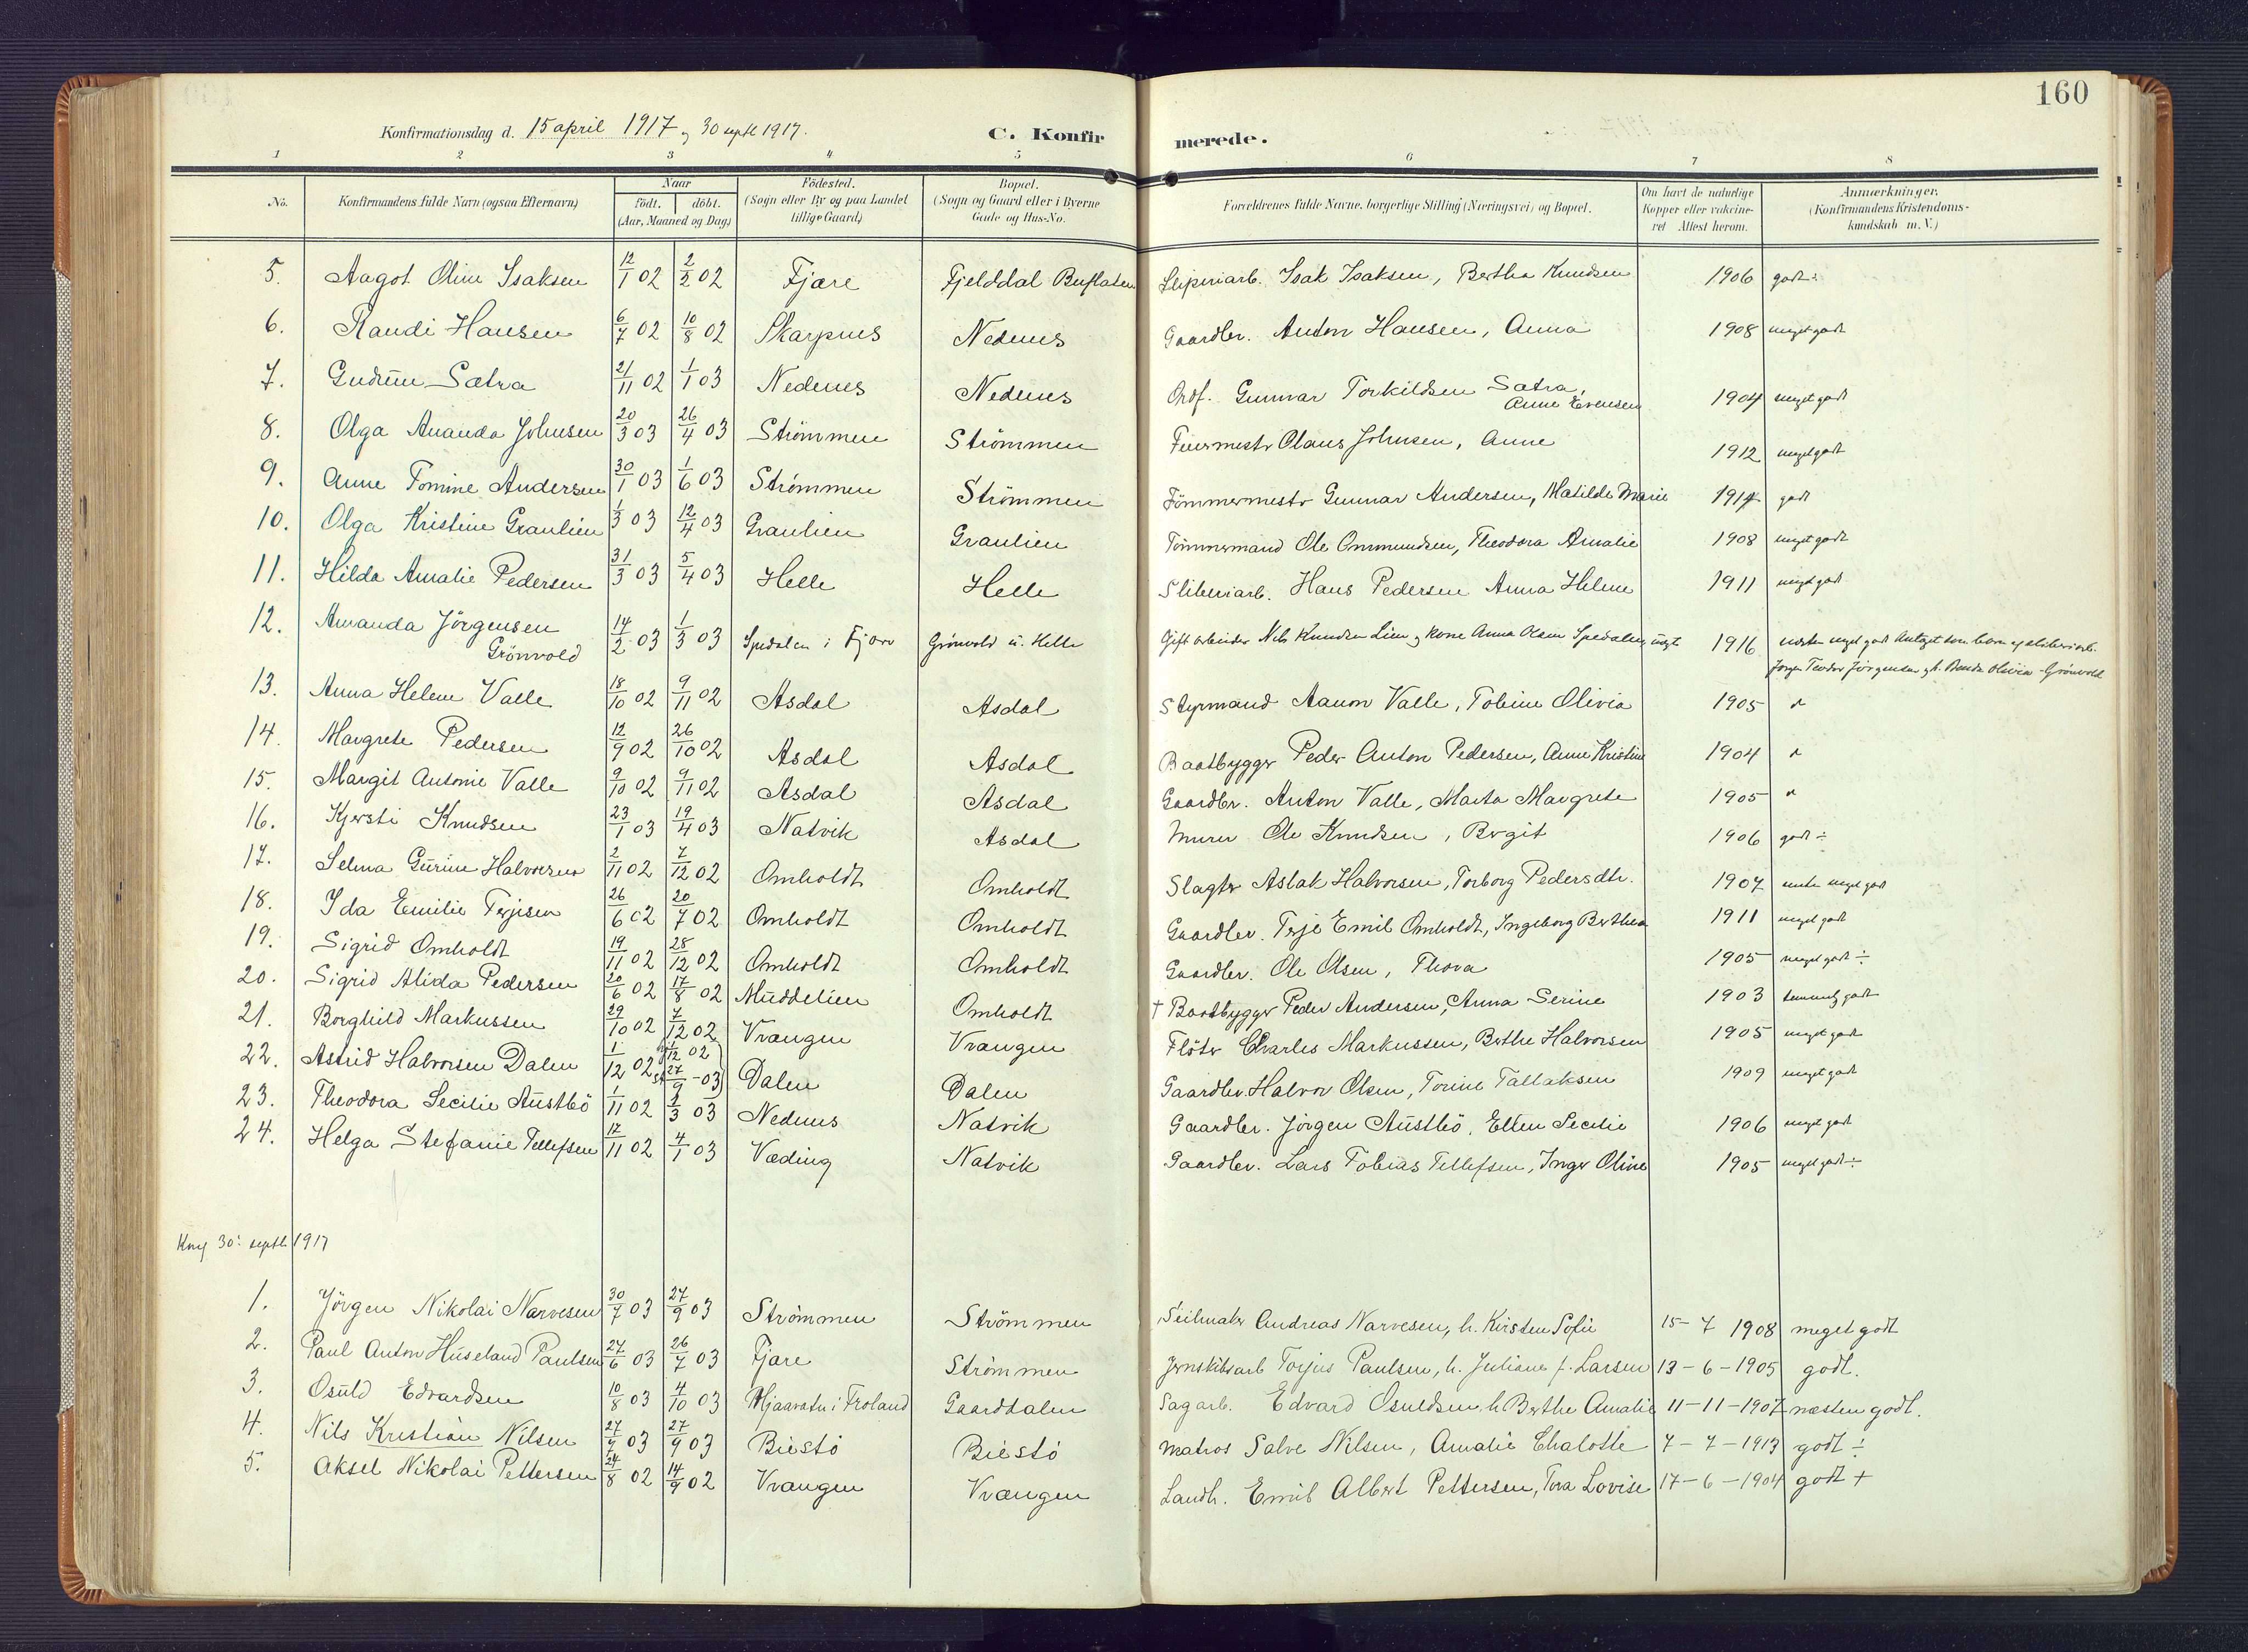 160
Konfirmationsdag d. 15 april 1917 og 30 septb 1917.
C. Konfirmerede.
1 2 3 4 5 6 7 8
No. Konfirmandens fulde Navn (ogsaa Efternavn) Naar födt. döbt. (Aar, Maaned og Dag) Födested. (Sogn eller By og paa Landet tillige Gaard) Bopæl. (Sogn og Gaard eller i Byerne Gade og Hus-No. Forældrenes fulde Navne, borgerlige Stilling (Næringsvei) og Bopæl. Om havt de naturlige Kopper eller vakcineret Attest herom. Anmærkninger. (Konfirmandens Kristendomskundskab m. V.)
5. Aagot Oline Isaksen 12/1 02 2/2 02 Fjære Fjelddal Buflaten Sliperiarb. Isak Isaksen, Bertha Knudsen 1906 godt ÷
6. Randi Hansen 6/7 02 10/8 02 Skarpnes Nedenes Gaardbr. Anton Hansen, Anna 1908 meget godt
7. Gudrun Sætra 21/11 02 1/1 03 Nedenes Nedenes Ordf. Gunnar Torkildsen Sætra, Anne Evensen 1904 meget godt
8. Olga Ananda Johnsen 20/3 03 26/4 03 Strömmen Strömmen Feiermestr Olaus Johnsen, Anne 1912 meget godt
9. Anne Tomine Andersen 30/1 03 1/6 03 Strömmen Strömmen Tömmermestr Gunnar Andersen, Matilde Marie 1914 godt
10. Olga Kristine Graulien 1/3 03 12/4 03 Graulien Graulien Tömmermand Ole Ommundsen, Theodora Amalie 1908 meget godt
11. Hilda Amalie Pedersen 31/3 03 5/4 03 Helle Helle Sliberiarb. Hans Pedersen Anna Helene 1911 meget godt
12. Amanda Jörgensen Grönvold 14/2 03 1/3 03 Spedalen i Fjære Grönvold u. Helle Gift arbeider Nils Knudsen Lien og kone Anna Olsen Spedalen, 1916 næsten meget godt Antaget som barn af sliberiarb. Jörgen Teodor Jörgensen og h. Olivia Grönvold
13. Anna Helene Valle 18/10 02 9/11 02 Asdal Asdal Styrmand Aanon Valle, Tobine Olivia 1905 "
14. Margrete Pedersen 12/9 02 26/10 02 Asdal Asdal Baatbygger Peder Anton Pedersen, Anne Kristine 1904 "
15. Margit Antonie Valle 9/10 02 9/11 02 Asdal Asdal Gaardbr. Anton Valle, Marta Margrete 1905 "
16. Kjersti Knudsen 23/1 03 19/4 03 Natvik Asdal Murer Ole Knudsen, Birgit 1906 godt ÷
17. Selma Gurine Halvorsen 2/11 02 7/12 02 Omholdt Omholdt Slagter Aslak Halvorsen, Torborg Pedersdtr. 1907 næsten meget godt
18. Ida Emilie Terjesen 26/6 02 20/7 02 Omholdt Omholdt Gaardbr. Terje Emil Omholdt, Ingeborg Berthea 1911 meget godt
19. Sigrid Omholdt 19/11 02 28/12 02 Omholdt Omholdt Gaardbr. Ole Olsen, Thora 1905 meget godt ÷
20. Sigrid Alida Pedersen 20/6 02 17/8 02 Muddelien Omholdt † Baatbygger Peder Andersen, Anna Serine 1903 temmelig godt
21. Borghild Markussen 29/10 02 7/12 02 Vrængen Vrængen Flöter Charles Markussen, Berthe Halvorsen 1905 meget godt
22. Astrid Halvorsen Dalen 1/12 02 1/12 02 27/9 - 03 Dalen Dalen Gaardbr. Halvor Olsen, Torine Tallaksen 1909 meget godt
23. Theodora Secilie Austbö 1/11 02 8/3 03 Nedenes Natvik Gaardbr. Jörgen Austbö, Ellen Secilie 1906 meget godt
24. Helga Stefanie Tellefsen 17/11 02 4/1 03 Væding Natvik Gaardbr. Lars Tobias Tellefsen, Inger Oline 1905 meget godt ÷
30: septb. 1917
1. Jörgen Nikolai Narvesen 30/7 03 27/9 03 Strömmen Strömmen Seilmaker Andreas Narvesen, h. Kirsten Sofie 15-7 1908 meget godt
2. Paul Anton Huseland Paulsen 27/6 03 26/7 03 Fjære Strömmen Jernskibsarb Torjus Paulsen, h. Juliane f. Larsen 13-6-1905 godt.
3. Osuld Edvardsen 10/8 03 4/10 03 Mjaavatn i Froland Gaarddalen Sagarb. Edvard Osuldsen, h Berthe Amalie 11-11-1907 næsten godt.
4. Nils Kristian Nilsen 27/7 03 27/9 03 Biestö Biestö Matros Salve Nilsen, Amalie Chalotte 7-7-1913 godt ÷
5. Aksel Nikolai Pettersen 24/8 02 14/9 02 Vrængen Vrængen Landh. Emil Albert Pettersen, Tora Lovise 17-6-1904 godt +